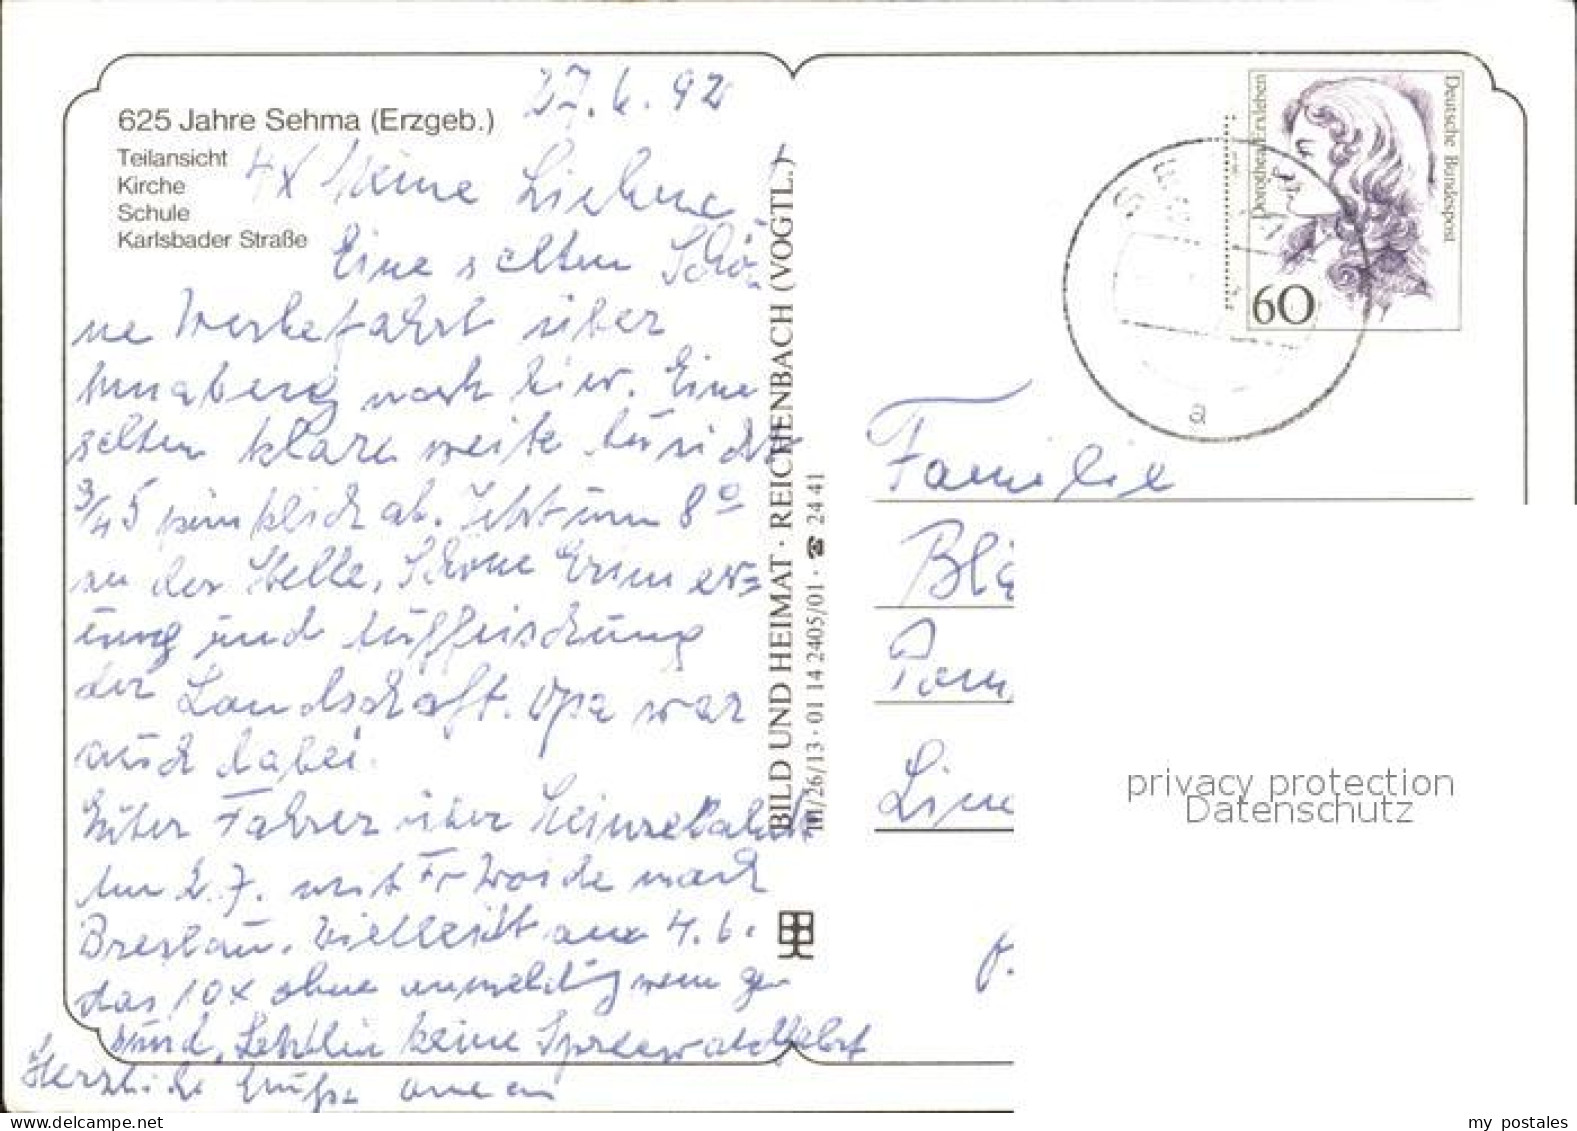 625 Jahre Sehma (Erzgeb.)
Teilansicht
Kirche
Schule
Karlsbader Straße
27.6.92
4x Meine Lieben
Eine selten Schö-
ne Werbefahrt über
Annaberg nach hier. Eine
selten klare weite
3/4 5 pünktlich ab. Jetzt um 8⁰
an der Stelle. Schöne Erinner=
ung und Auffrischung
der Landschaft. Opa war
auch dabei.
Guter Fahrer über
Am 2.7. mit Fr nach
Breslau. Vielleicht am 4.6.
das 10x ohne anmeldung wenn ge-
sund. Letztlin keine Spreewaldfahrt
Herzliche Grüße
BILD UND HEIMAT · REICHENBACH (VOGTL.)
III/26/13 · 01 14 2405/01 · ☎ 24 41
Dorothea Erxleben
Deutsche Bundespost
60
SEHMA
a
Familie
privacy protection
Datenschutz
www.delcampe.net
my_postales